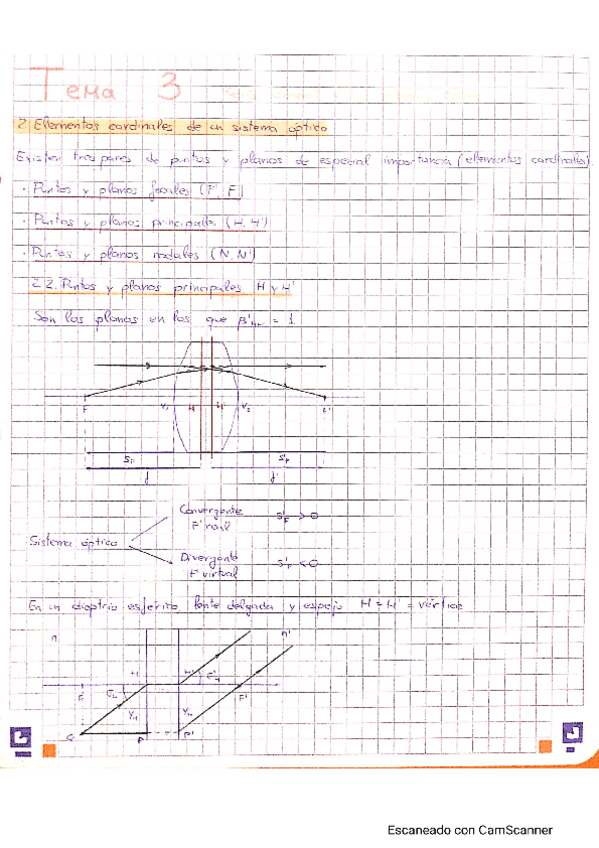 Tema 3
2. Elementos cardinales de un sistema óptico
Existen tres pares de puntos y planos de especial importancia (elementos cardinales)
· Puntos y planos focales (F, F')
· Puntos y planos principales (H, H')
· Puntos y planos nodales (N, N')
2.2. Puntos y planos principales H y H'
Son los planos en los que β'
= 1
F V₁ H H' V₂ F'
f f'
Convergente
F' real S'F' > 0
Sistema óptico
Divergente
F' virtual S'F' < 0
En un dioptrio esférico, lente delgada y espejo H = H' = vértice
n n'
H H'
F F'
P P'
Escaneado con CamScanner